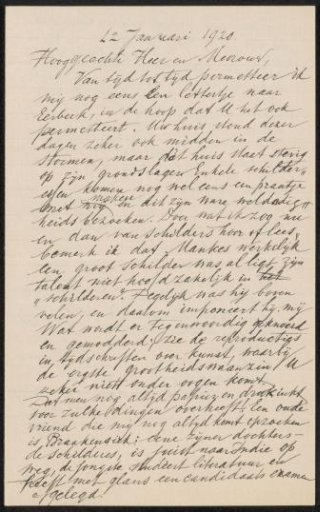 12 Januari 1920.
Hooggeachte Heer en Mevrouw,
Van tyd tot tyd permetteer ik
my nog eens een lettertje naar
Eerbeek, in de hoop dat U het ook
permetteert. Uw huis stond dezer
dagen zeker ook midden in de
stormen, maar dat huis staat stevig
op zyn grondslagen. Enkele schilder-
essen komen nog wel eens een praatje
maken en dit zyn ware weldadig-
heids bezoeken. Door wat ik zoo nu
en dan van schilders hoor of lees,
bemerk ik dat Mankes werkelyk
een groot schilder was al ligt zyn
talent niet hoofdzakelyk in het
"schilderen". Degelyk was hy boven
velen, en daarom imponeert hy my
Wat wordt er tegenwoordig geknoeid
en gemodderd! Zie de reproducties
in tydschriften over kunst, waarby
de ergste grootheidswaanzin U
zeker niet onder oogen komt.
Dat men nog altyd papier en drukinkt
voor zulke dingen overheeft! Een oude
vriend die my nog altyd komt opzoeken
is, Brankensiek: eene zyner dochters-
de schilderes, is juist naar Indie op
weg; de jongste studeert literatuur en
heeft met glans een candidaats examen
afgelegd.